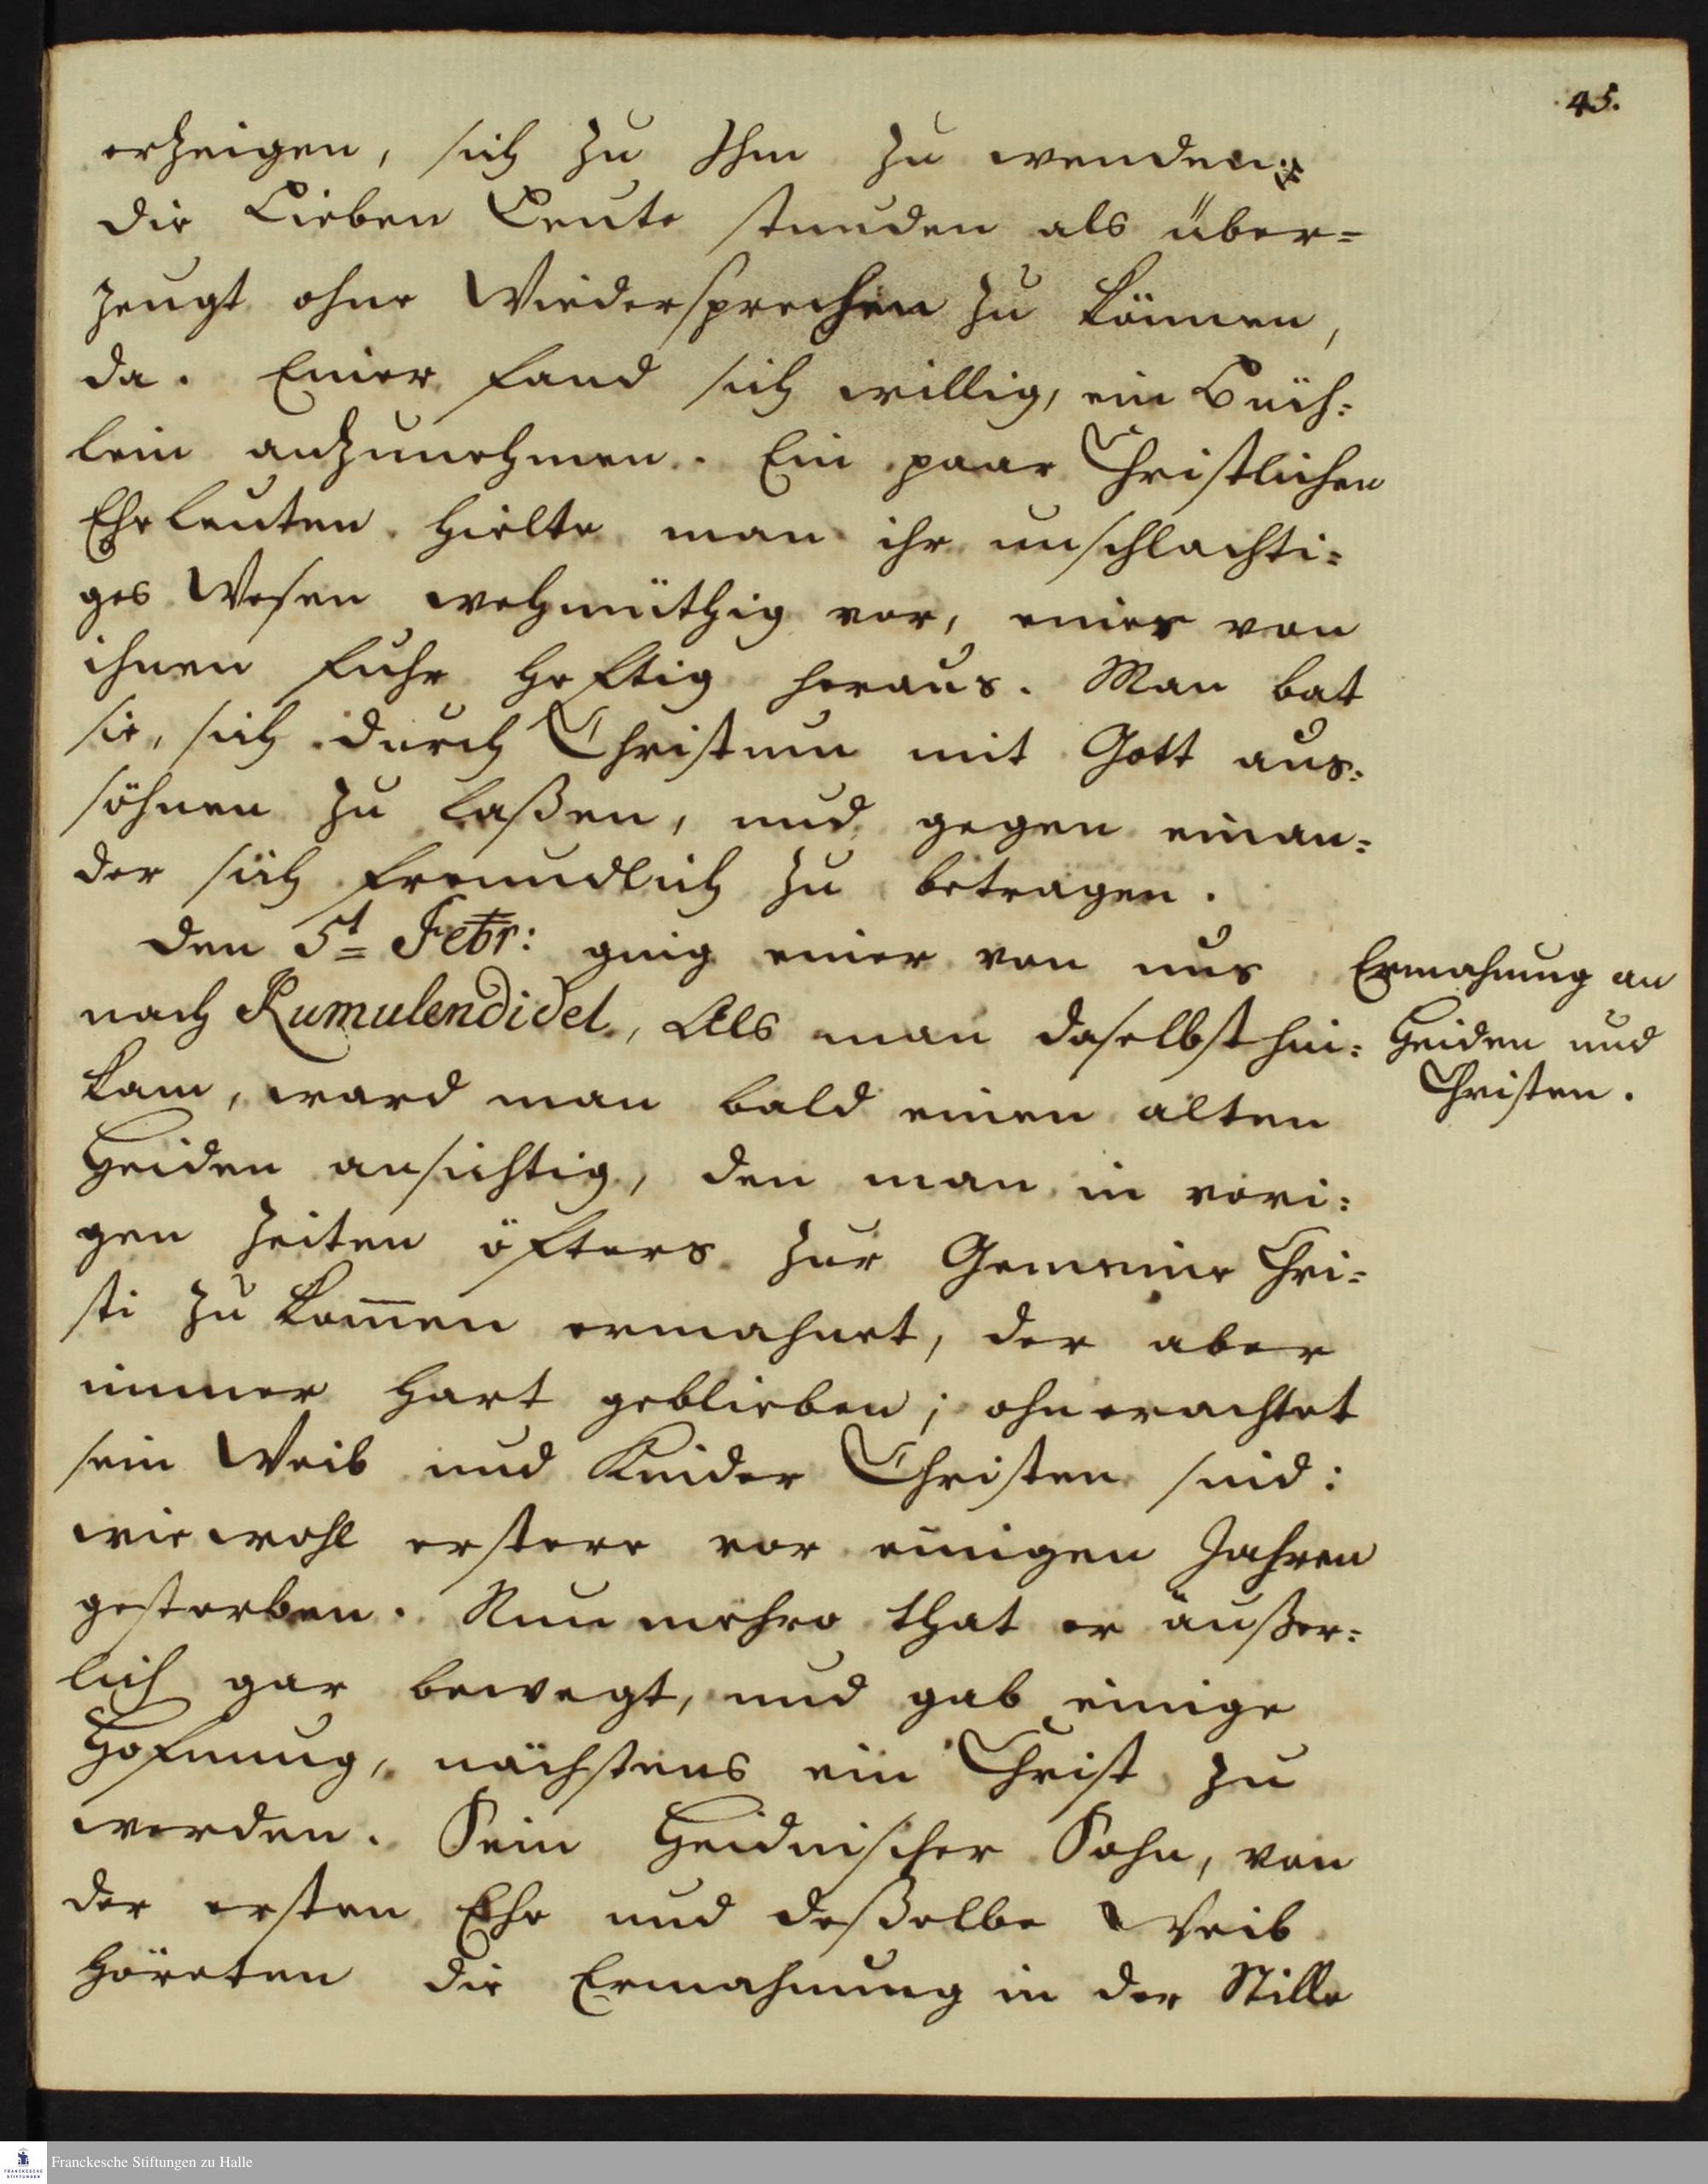 45.
erzeigen, sich zu Ihm zu wenden.
Die Lieben Leute stunden als über=
zeugt ohne Wiedersprechen zu können,
da. Einer fand sich willig, ein Büch=
lein anzunehmen. Ein paar Christlichen
Eheleuten hielte man ihr unschlachti=
ges Wesen wehmüthig vor, einer von
ihnen fuhr heftig heraus. Man bat
sie, sich durch Christum mit Gott aus=
söhnen zu laßen, und gegen einan=
der sich freundlich zu betragen.
Den 5t Febr: ging einer von uns
nach Rumulendidel, Als man daselbst hin=
kam, ward man bald einen alten
Heiden ansichtig, den man in vori=
gen Zeiten öfters zur Gemeine Chri=
sti zu kom̄en ermahnet, der aber
immer hart geblieben; ohnerachtet
sein Weib und Kinder Christen sind:
wiewohl erstere vor einigen Jahren
gestorben. Nunmehro that er äußer=
lich gar bewegt, und gab einige
Hofnung, nächstens ein Christ zu
werden. Sein Heidnischer Sohn, von
der ersten Ehe und deßelbe Weib
höreten die Ermahnung in der Stille
Ermahnung an
Heiden und
Christen.
FRANCKESCHE STIFTUNGEN
Franckesche Stiftungen zu Halle